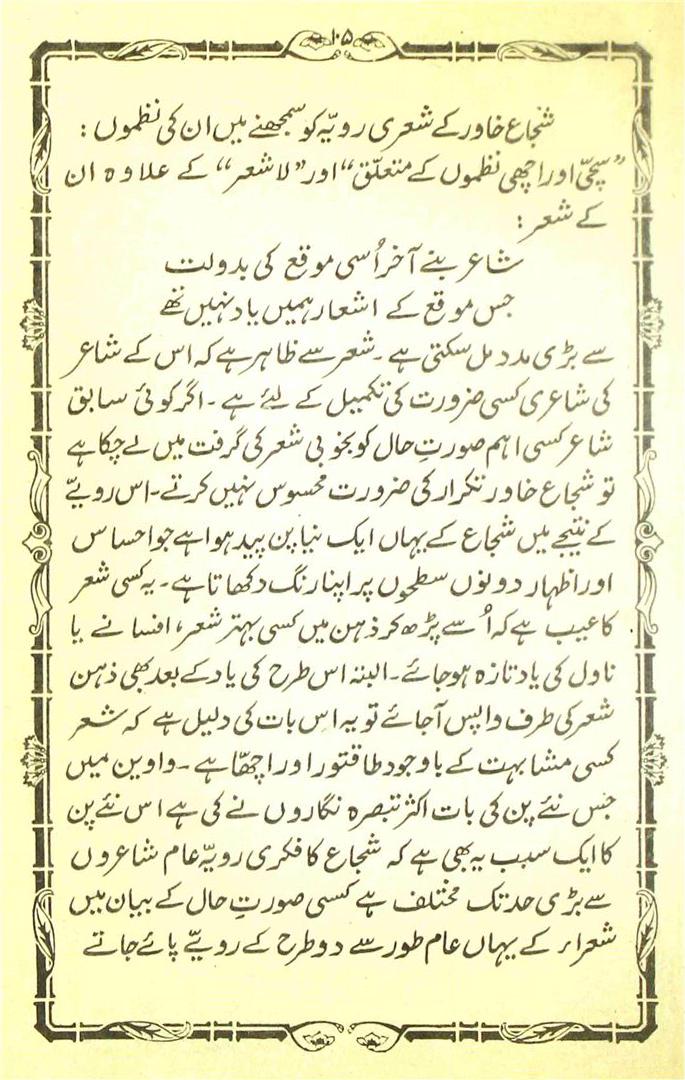 ۱۰۵
شجاع خاور کے شعری رویّہ کو سمجھنے میں ان کی نظموں :
”سچّی اور اچھی نظموں کے متعلّق“ اور ”لا شعر“ کے علاوہ ان
کے شعر :
شاعر بنے آخر اُسی موقع کی بدولت
جس موقع کے اشعار ہمیں یاد نہیں تھے
سے بڑی مدد مل سکتی ہے ۔ شعر سے ظاہر ہے کہ اس کے شاعر
کی شاعری کسی ضرورت کی تکمیل کے لئے ہے ۔ اگر کوئی سابق
شاعر کسی اہم صورتِ حال کو بخوبی شعر کی گرفت میں لے چکا ہے
تو شجاع خاور تکرار کی ضرورت محسوس نہیں کرتے ۔ اس رویّے
کے نتیجے میں شجاع کے یہاں ایک نیا پن پید ہوا ہے جو احساس
اور اظہار دونوں سطحوں پر اپنا رنگ دکھاتا ہے ۔ یہ کسی شعر
کا عیب ہے کہ اُسے پڑھ کر ذہن میں کسی بہتر شعر ، افسانے یا
ناول کی یاد تازہ ہو جائے ۔ البتہ اس طرح کی یاد کے بعد بھی ذہن
شعر کی طرف واپس آ جائے تو یہ اس بات کی دلیل ہے کہ شعر
کسی مشابہت کے باوجود طاقتور اور اچھّا ہے ۔ واوین میں
جس نئے پن کی بات اکثر تبصرہ نگاروں نے کی ہے اس نئے پن
کا ایک سبب یہ بھی ہے کہ شجاع کا فکری رویّہ عام شاعروں
سے بڑی حد تک مختلف ہے کسی صورتِ حال کے بیان میں
شعراء کے یہاں عام طور سے دو طرح کے رویّے پائے جاتے